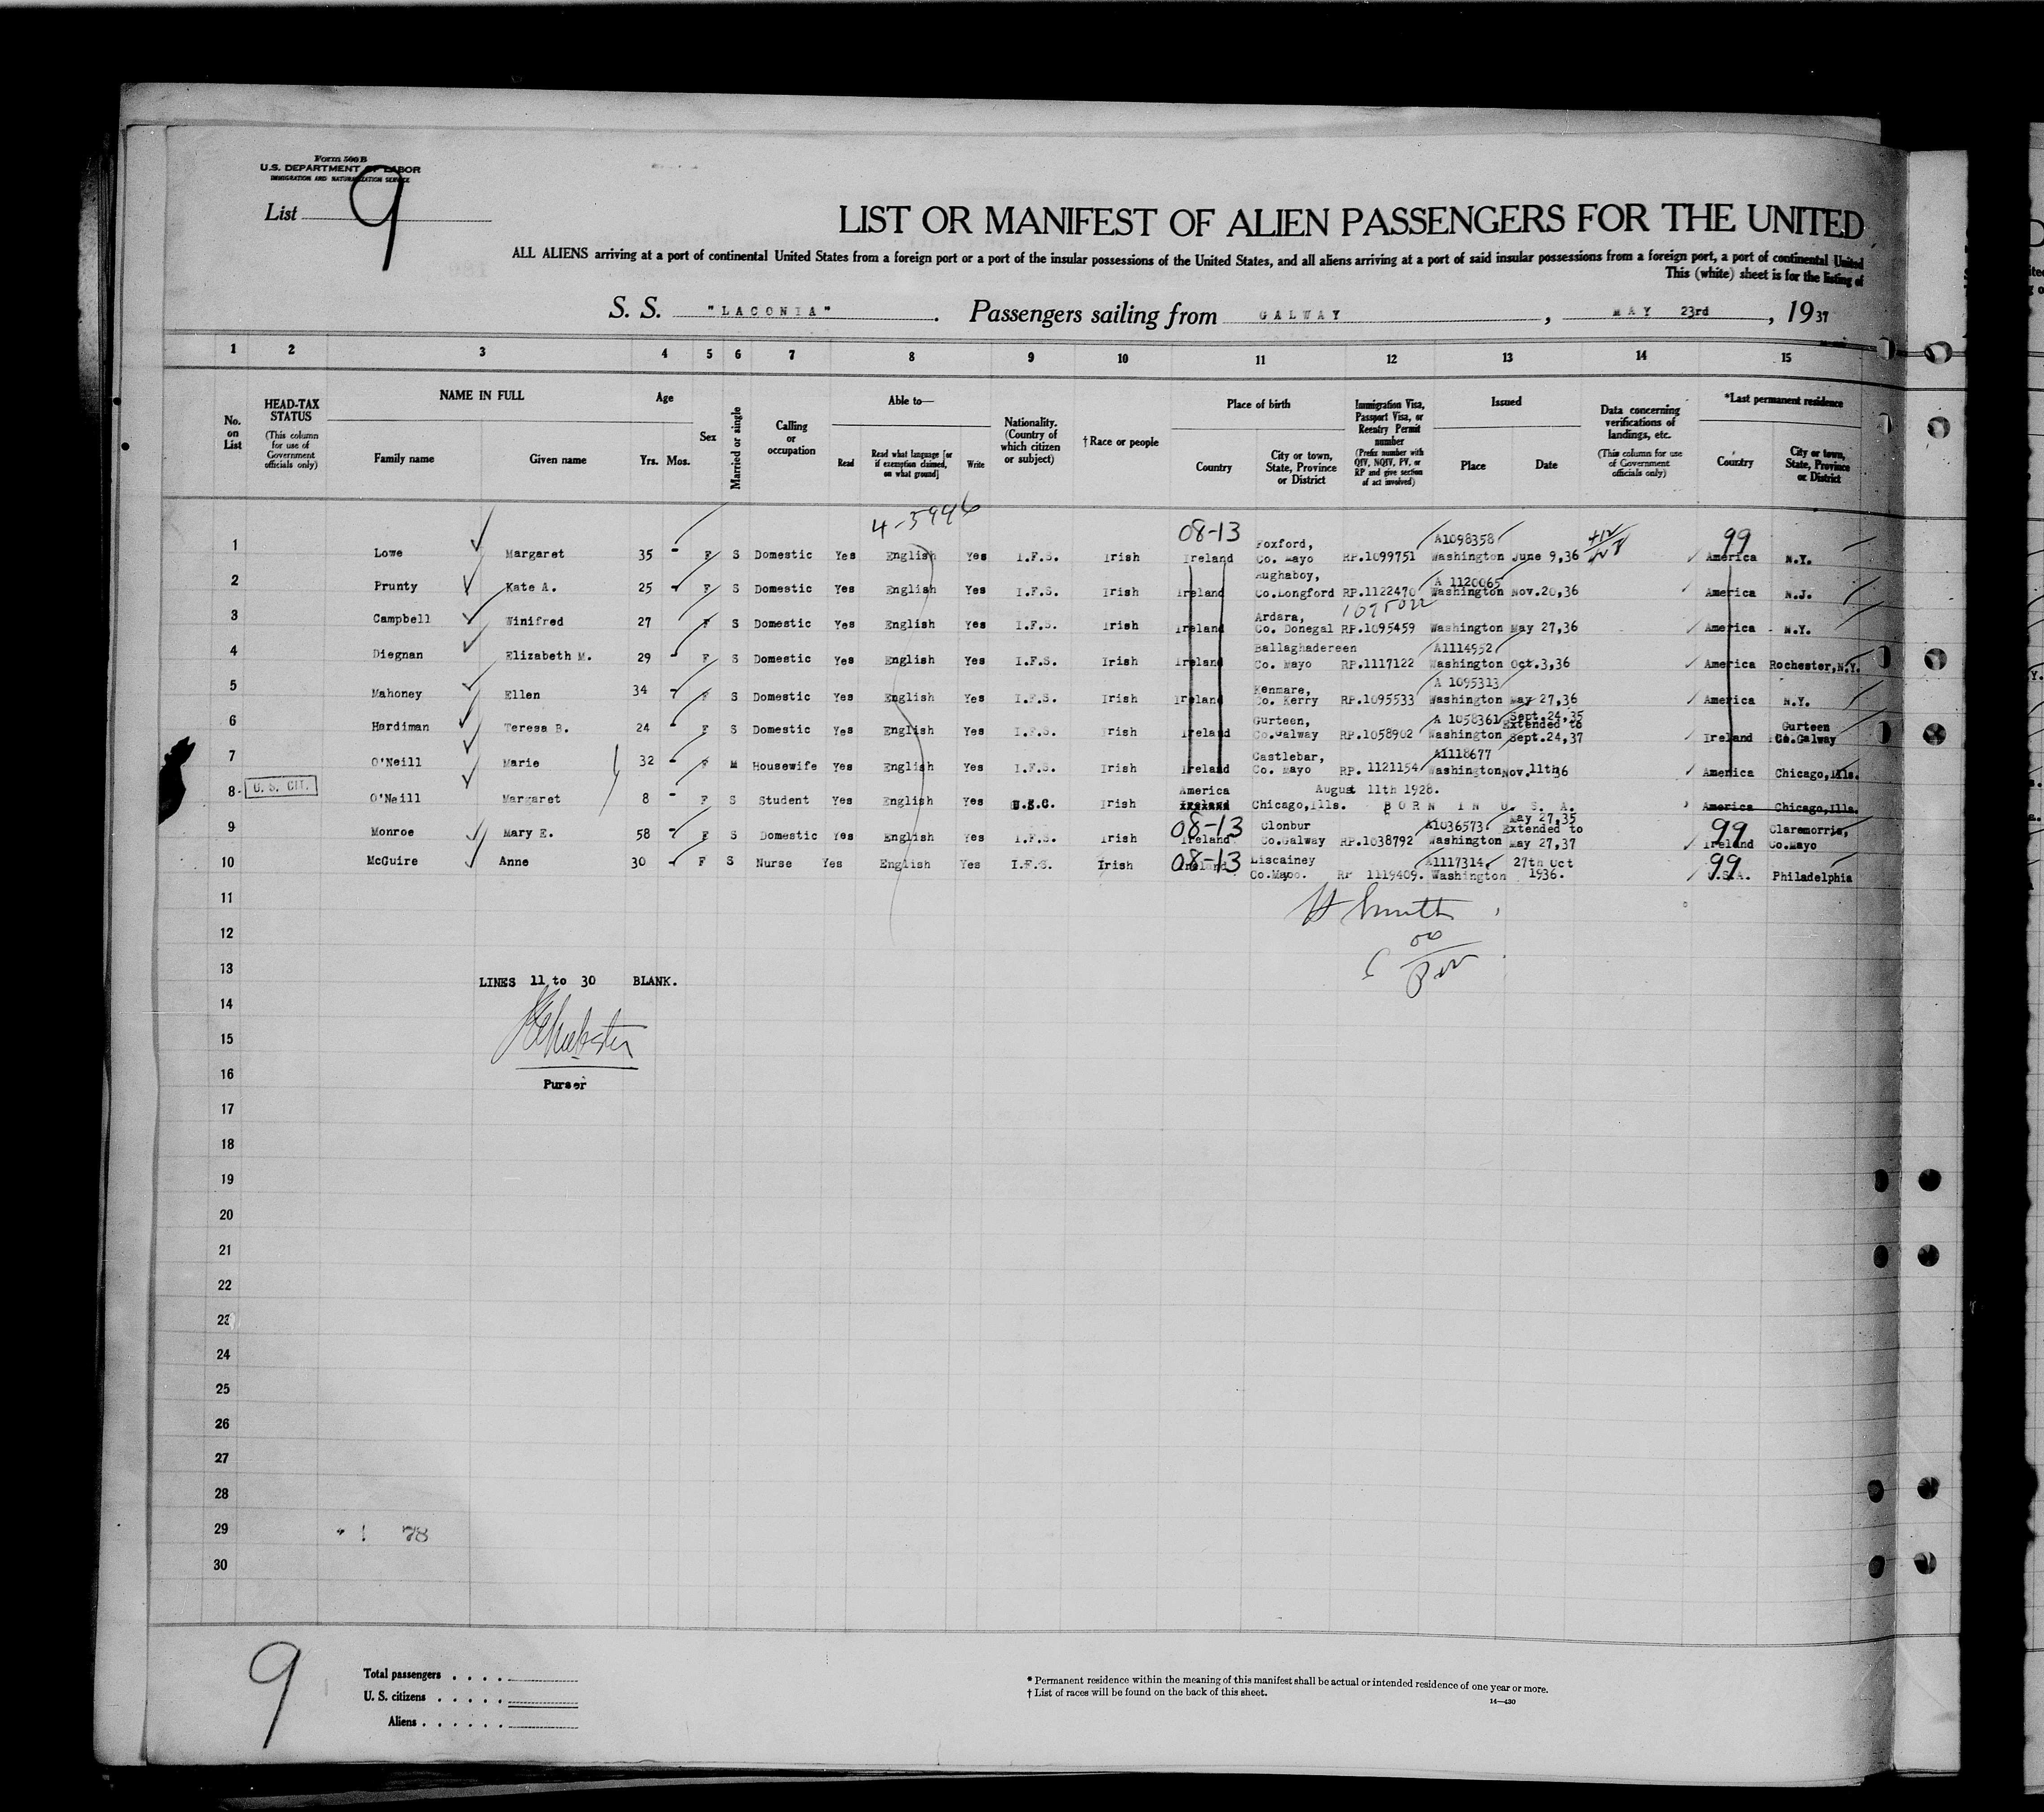 Form 500 B
U.S. DEPARTMENT OF LABOR
IMMIGRATION AND NATURALIZATION SERVICE
List 9
LIST OR MANIFEST OF ALIEN PASSENGERS FOR THE UNITED
ALL ALIENS arriving at a port of continental United States from a foreign port or a port of the insular possessions of the United States, and all aliens arriving at a port of said insular possessions from a foreign port, a port of continental United
This (white) sheet is for the listing of
S. S. "LACONIA". Passengers sailing from GALWAY, MAY 23rd, 1937
1 2 3 4 5 6 7 8 9 10 11 12 13 14 15
No. on List
HEAD-TAX STATUS (This column for use of Government officials only)
NAME IN FULL
Family name Given name
Age
Yrs. Mos.
Sex
Married or single
Calling or occupation
Able to—
Read
Read what language [or if exemption claimed, on what ground]
Write
Nationality. (Country of which citizen or subject)
†Race or people
Place of birth
Country
City or town, State, Province or District
Immigration Visa, Passport Visa, or Reentry Permit number (Prefix number with QIV, NQIV, PV, or RP and give section of act involved)
Issued
Place Date
Data concerning verifications of landings, etc. (This column for use of Government officials only)
*Last permanent residence
Country
City or town, State, Province or District
4-5946 08-13 99
1 Lowe Margaret 35 - F S Domestic Yes English Yes I.F.S. Irish Ireland Foxford, Co. Mayo RP.1099751 A1098358 Washington June 9,36 America N.Y.
2 Prunty Kate A. 25 - F S Domestic Yes English Yes I.F.S. Irish Ireland Aughaboy, Co.Longford RP.1122470 A 1120065 Washington Nov.20,36 America N.J.
3 Campbell Winifred 27 F S Domestic Yes English Yes I.F.S. Irish Ireland Ardara, Co. Donegal RP.1095459 Washington May 27,36 America N.Y.
4 Diegnan Elizabeth M. 29 - F S Domestic Yes English Yes I.F.S. Irish Ireland Ballaghadereen Co. Mayo RP.1117122 A1114952 Washington Oct.3,36 America Rochester,N.Y.
5 Mahoney Ellen 34 - F S Domestic Yes English Yes I.F.S. Irish Ireland Kenmare, Co. Kerry RP.1095533 A 1095313 Washington May 27,36 America N.Y.
6 Hardiman Teresa B. 24 - F S Domestic Yes English Yes I.F.S. Irish Ireland Gurteen, Co.Galway RP.1058902 A 1058361 Washington Sept.24,35 Extended to Sept.24,37 Ireland Gurteen Co.Galway
7 O'Neill Marie 32 - F M Housewife Yes English Yes I.F.S. Irish Ireland Castlebar, Co. Mayo RP. 1121154 A1118677 Washington Nov.11th36 America Chicago,Ills.
8 U. S. CIT. O'Neill Margaret 8 - F S Student Yes English Yes U.S.C. Irish America Ireland Chicago,Ills. August 11th 1928. BORN IN U. S. A. America Chicago,Ills.
9 Monroe Mary E. 58 - F S Domestic Yes English Yes I.F.S. Irish 08-13 Ireland Clonbur Co.Galway RP.1038792 A1036573 Washington May 27,35 Extended to May 27,37 99 Ireland Claremorris, Co.Mayo
10 McGuire Anne 30 - F S Nurse Yes English Yes I.F.S. Irish 08-13 Ireland Liscainey Co.Mayo. RP 1119409. A1117314. Washington 27th Oct 1936. 99 U.S.A. Philadelphia
11
H Smith
12
13
LINES 11 to 30 BLANK.
14
15
16
Purser
17
18
19
20
21
22
23
24
25
26
27
28
29 1 78
30
9
Total passengers
U. S. citizens
Aliens
* Permanent residence within the meaning of this manifest shall be actual or intended residence of one year or more.
† List of races will be found on the back of this sheet.
14—430